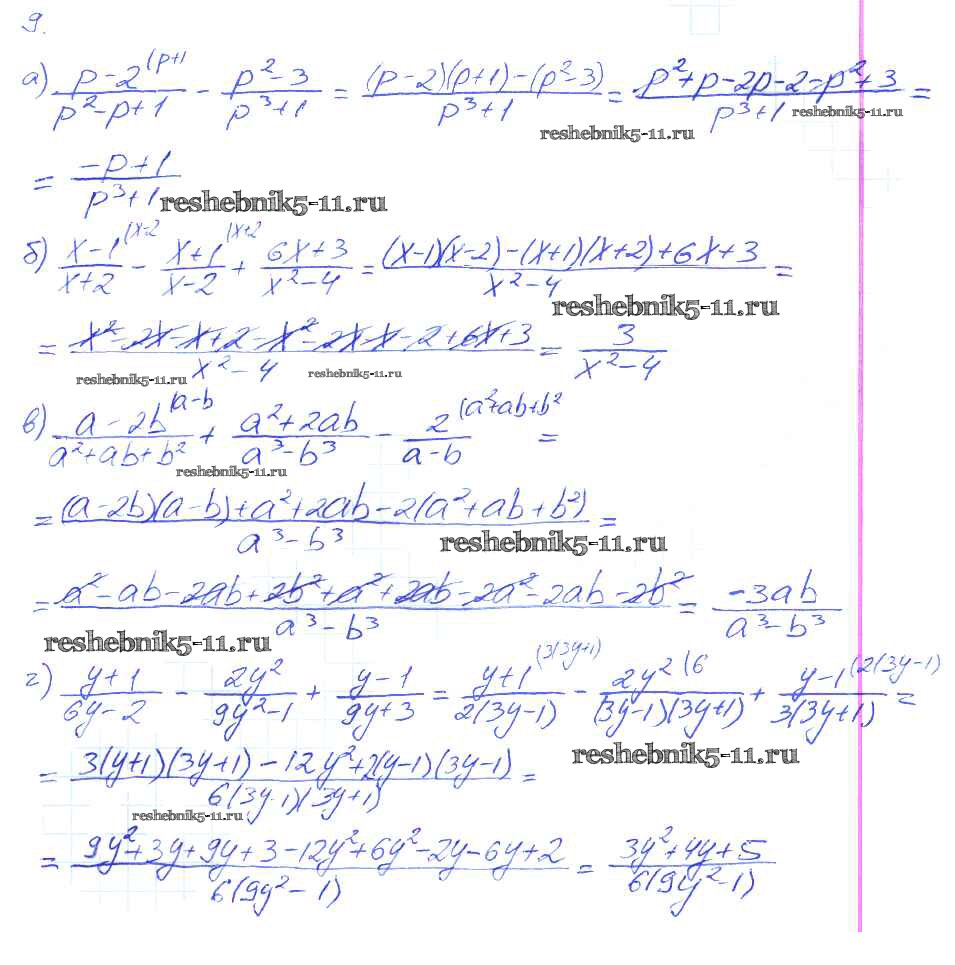 9.
а) (p-2)/(p²-p+1) (p+1 - (p²-3)/(p³+1) = ((p-2)(p+1)-(p²-3))/(p³+1) = (p²+p-2p-2-p²+3)/(p³+1) =
reshebnik5-11.ru reshebnik5-11.ru
= (-p+1)/(p³+1)
reshebnik5-11.ru
б) (x-1)/(x+2) (x-2 - (x+1)/(x-2) (x+2 + (6x+3)/(x²-4) = ((x-1)(x-2)-(x+1)(x+2)+6x+3)/(x²-4) =
reshebnik5-11.ru
= (x²-2x-x+2-x²-2x-x-2+6x+3)/(x²-4) = 3/(x²-4)
reshebnik5-11.ru reshebnik5-11.ru
в) (a-2b)/(a²+ab+b²) (a-b + (a²+2ab)/(a³-b³) - 2/(a-b) (a²+ab+b² =
reshebnik5-11.ru
= ((a-2b)(a-b)+a²+2ab-2(a²+ab+b²))/(a³-b³) =
reshebnik5-11.ru
= (a²-ab-2ab+2b²+a²+2ab-2a²-2ab-2b²)/(a³-b³) = (-3ab)/(a³-b³)
reshebnik5-11.ru
г) (y+1)/(6y-2) - 2y²/(9y²-1) + (y-1)/(9y+3) = (y+1)/(2(3y-1)) (3(3y+1) - 2y²/((3y-1)(3y+1)) (6 + (y-1)/(3(3y+1)) (2(3y-1) =
reshebnik5-11.ru
= (3(y+1)(3y+1)-12y²+2(y-1)(3y-1))/(6(3y-1)(3y+1)) =
reshebnik5-11.ru
= (9y²+3y+9y+3-12y²+6y²-2y-6y+2)/(6(9y²-1)) = (3y²+4y+5)/(6(9y²-1))